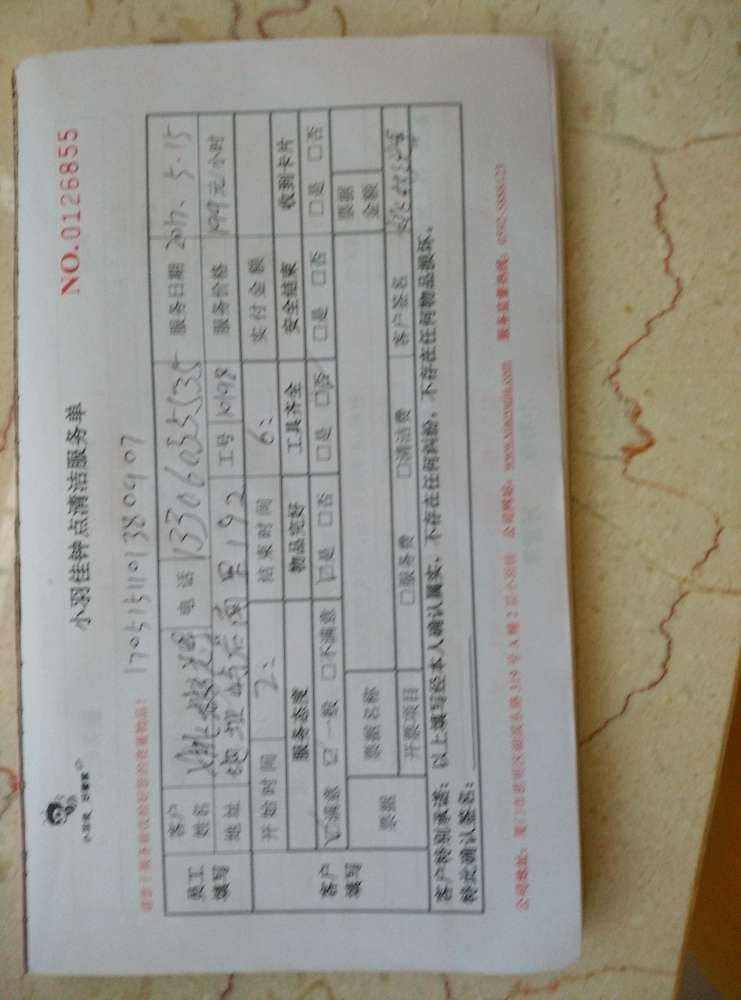 小羽佳 好管家
小羽佳钟点清洁服务单
NO.0126855
请您于服务前收拾好您的贵重物品:
1705151101380907
员工填写
客户姓名 电话 13306035535 服务日期 2017.5.15
地址 后面 里192 工号 服务价格 元/小时
开始时间 2: 结束时间 6: 实付金额
客户填写
服务态度 物品完好 工具齐全 安全结束 收到卡片
☑满意 ☑一般 □不满意 ☑是 □否 □是 □否 □是 □否 □是 □否
票据 票据名称 票据金额
开票项目 □服务费 □清洁费 客户签名
客户特别承诺: 以上填写经本人确认属实,不存在任何纠纷,不存在任何物品损坏。
特此确认签名:
公司地址: 厦门市 319号A幢2层小羽佳 公司网站: www.xiaoyujia.com 服务监督热线: 0592-5888123